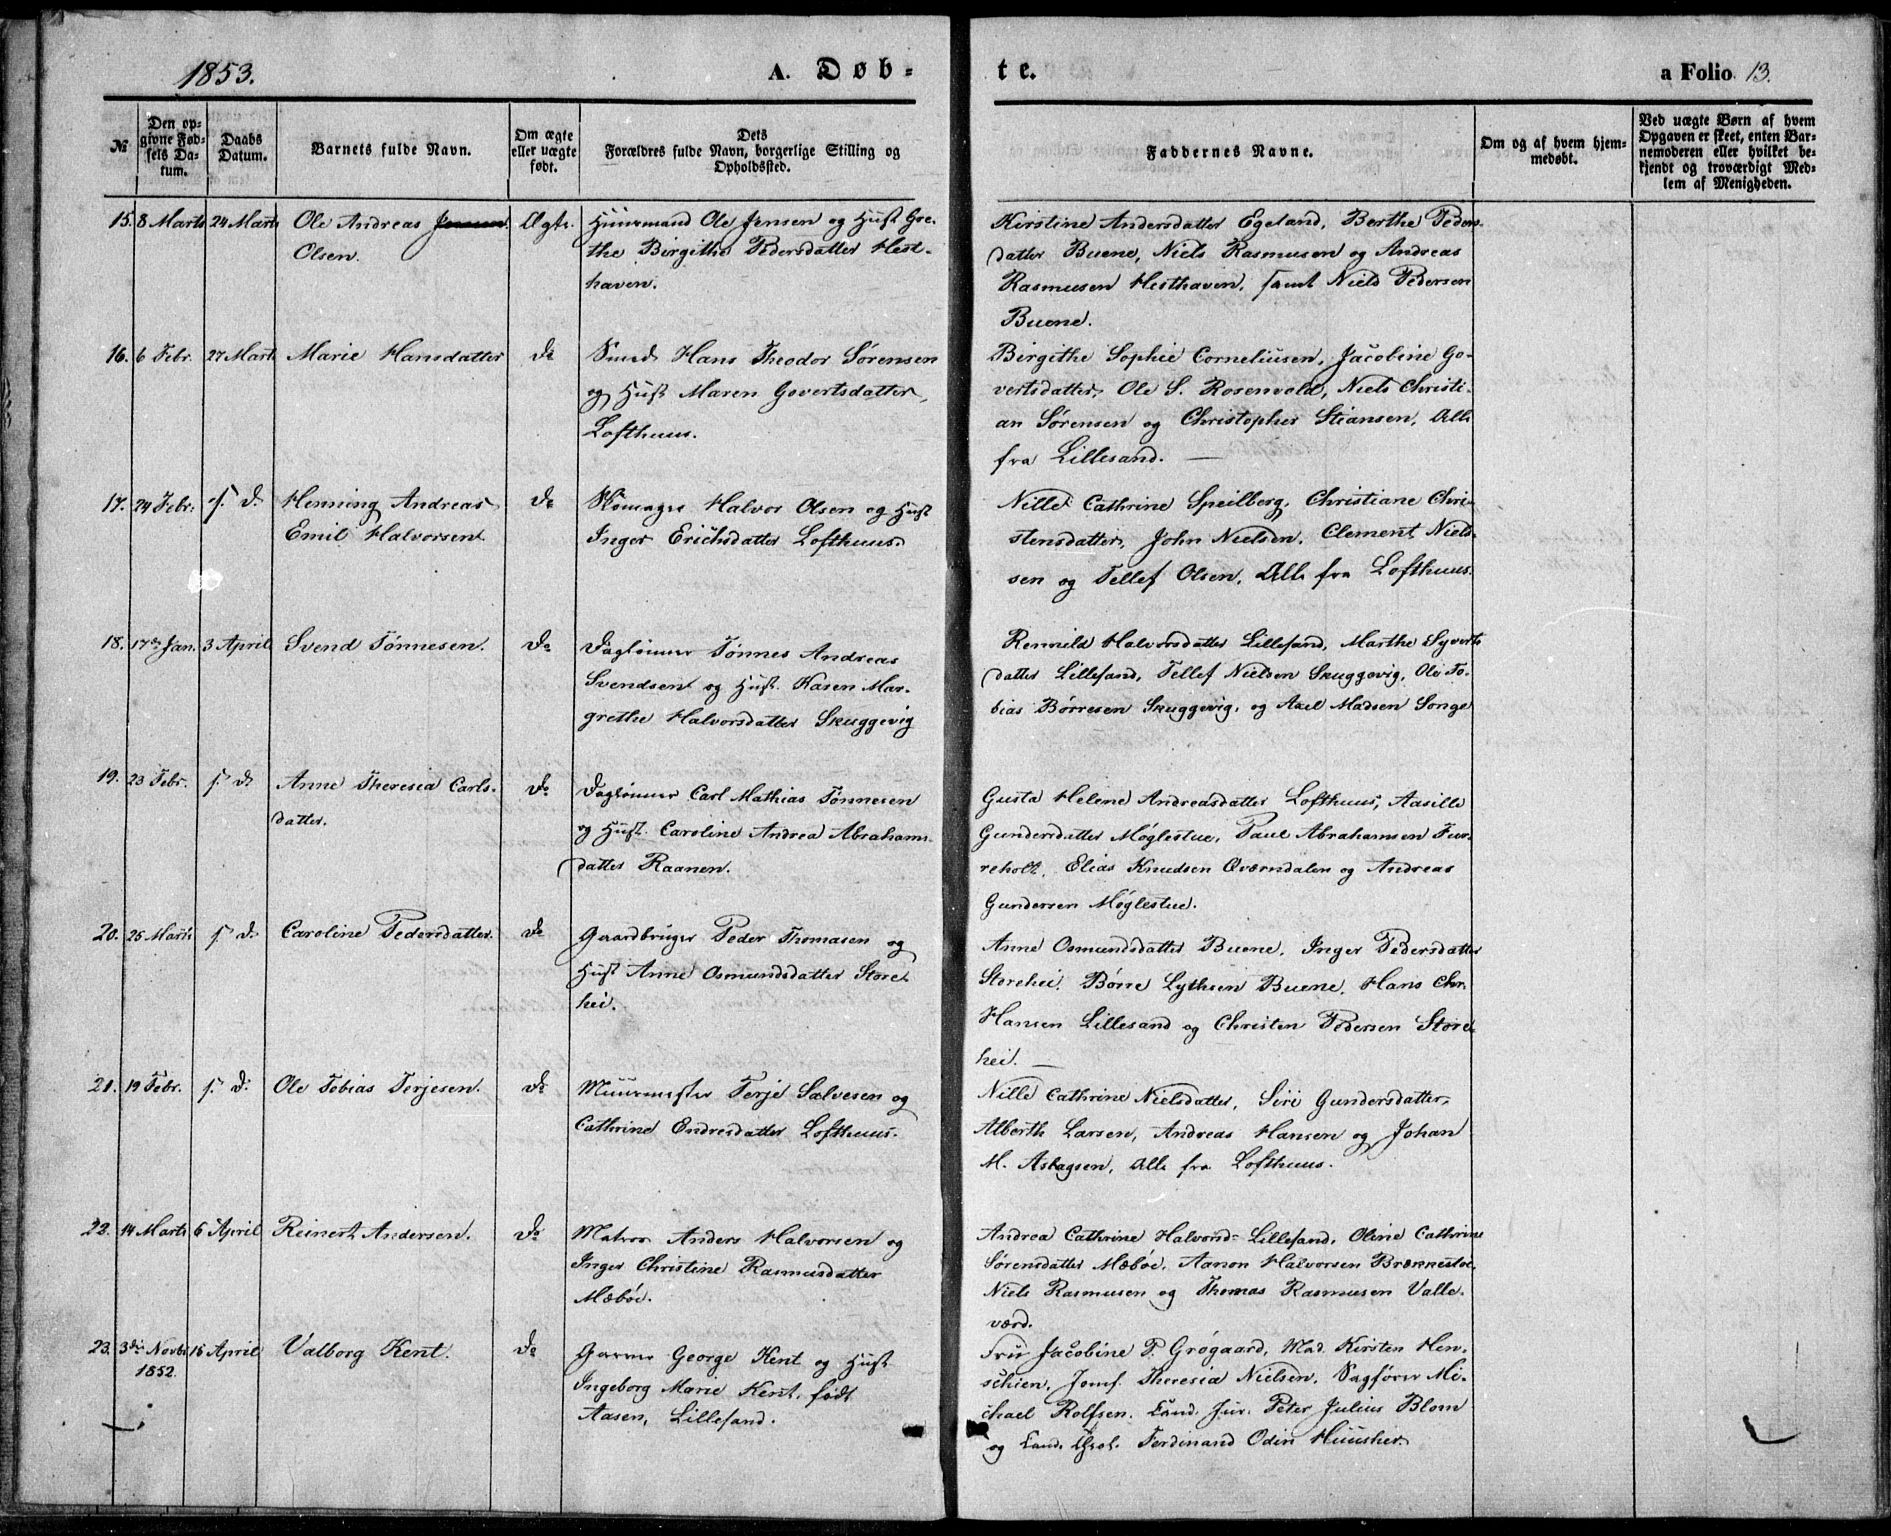 1853.
A. Døb-
te.
a Folio 13.
№
Den op-
givne Fød-
sels Da-
tum.
Daabs
Datum.
Barnets fulde Navn.
Om ægte
eller uægte
født.
Dets
Forældres fulde Navn, borgerlige Stilling og
Opholdssted.
Faddernes Navne.
Om og af hvem hjem-
medøbt.
Ved uægte Børn af hvem
Opgaven er skeet, enten Bar-
nemoderen eller hvilket be-
kjendt og troværdigt Med-
lem af Menigheden.
15. 8 Marts 24 Marts Ole Andreas Jensen
Olsen.
Ægte.
Huusmand Ole Jensen og Hust. Gre-
the Birgithe Pedersdatter Hest-
haven.
Kirstine Andersdatter Egeland, Berthe Peders-
datter Buene, Niels Rasmusen og Andreas
Rasmusen Hesthaven, samt Nield Pedersen
Buene.
16. 6 Febr. 27 Marts Marie Hansdatter
Do
Smed Hans Theodor Sørensen
og Hust Maren Govertsdatter,
Lofthuus.
Birgithe Sophie Corneliusen, Jacobine Go-
vertsdatter, Ole S. Rosenvold, Niels Christi-
an Sørensen og Christopher Stiansen, Alle
fra Lillesand.
17. 24 Febr. s. D. Henning Andreas
Emil Halvorsen
Do
Skomager Halvor Olsen og Hust
Inger Erichsdatter Lofthuus.
Nille Cathrine Speilberg, Christiane Chri-
stensdatter, John Nielsen, Clement Niels-
sen og Tellef Olsen, Alle fra Lofthuus.
18. 17de Jan. 3 April Svend Tønnesen.
Do
Dagleiner Tønnes Andreas
Svendsen og Hust. Karen Mar-
grethe Halvorsdatter Skuggevig
Rennild Halvorsdatter Lillesand, Marthe Syverts
datter Lillesand, Tellef Nielsen Skuggevig, Ole To-
bias Børresen Skuggevig, og Axel Madsen Songe
19. 23 Febr. s. D. Anne Theresia Carls-
datter.
Do
Dagleiner Carl Mathias Tønnesen
og Hust. Caroline Andrea Abrahams-
datter Raanen.
Gusta Helene Andreasdatter Lofthuus, Aasille
Gundersdatter Møglestue, Paul Abrahamsen Fur-
reholt, Elias Knudsen Qværndalen og Andreas
Gundersen Møglestue.
20. 25 Marts s. D. Caroline Pedersdatter.
Do
Gaardbruger Peder Thomasen og
Hust Anne Osmundsdatter Store-
hei.
Anne Osmundsdatter Buene, Inger Pedersdatter
Storehei, Børre Lythsen Buene, Hans Chr.
Hansen Lillesand og Christen Pedersen Store-
hei.
21. 19 Febr. s. D. Ole Tobias Terjesen.
Do
Muurmester Terje Salvesen og
Cathrine Endresdatter Lofthuus.
Nille Cathrine Nielsdatter, Siri Gundersdatter,
Alberth Larsen, Andreas Hansen og Johan
M. Aslagsen, Alle fra Lofthuus.
22. 14 Marts 6 April Reinert Andersen.
Do
Matros Anders Halvorsen og
Inger Christine Rasmusdatter
Mæbøe.
Andrea Cathrine Halvorsd= Lillesand, Oline Cathrine
Sørensdatter Mæbøe, Aanon Halvorsen Brænnestøe,
Niels Rasmusen og Thomas Rasmusen Valle-
værd.
23. 3die Novbr 1852. 16 April Valborg Kent.
Do
Garver George Kent og Hust
Ingeborg Marie Kent, født
Aasen, Lillesand.
Fru Jacobine P. Grøgaard, Mad. Kirsten Hen-
schien, Jomf. Theresia Nielsen, Sagfører Mi-
chael Rolfsen, Cand. Jur. Peter Julius Blom
og Cand. Theol. Ferdinand Odin